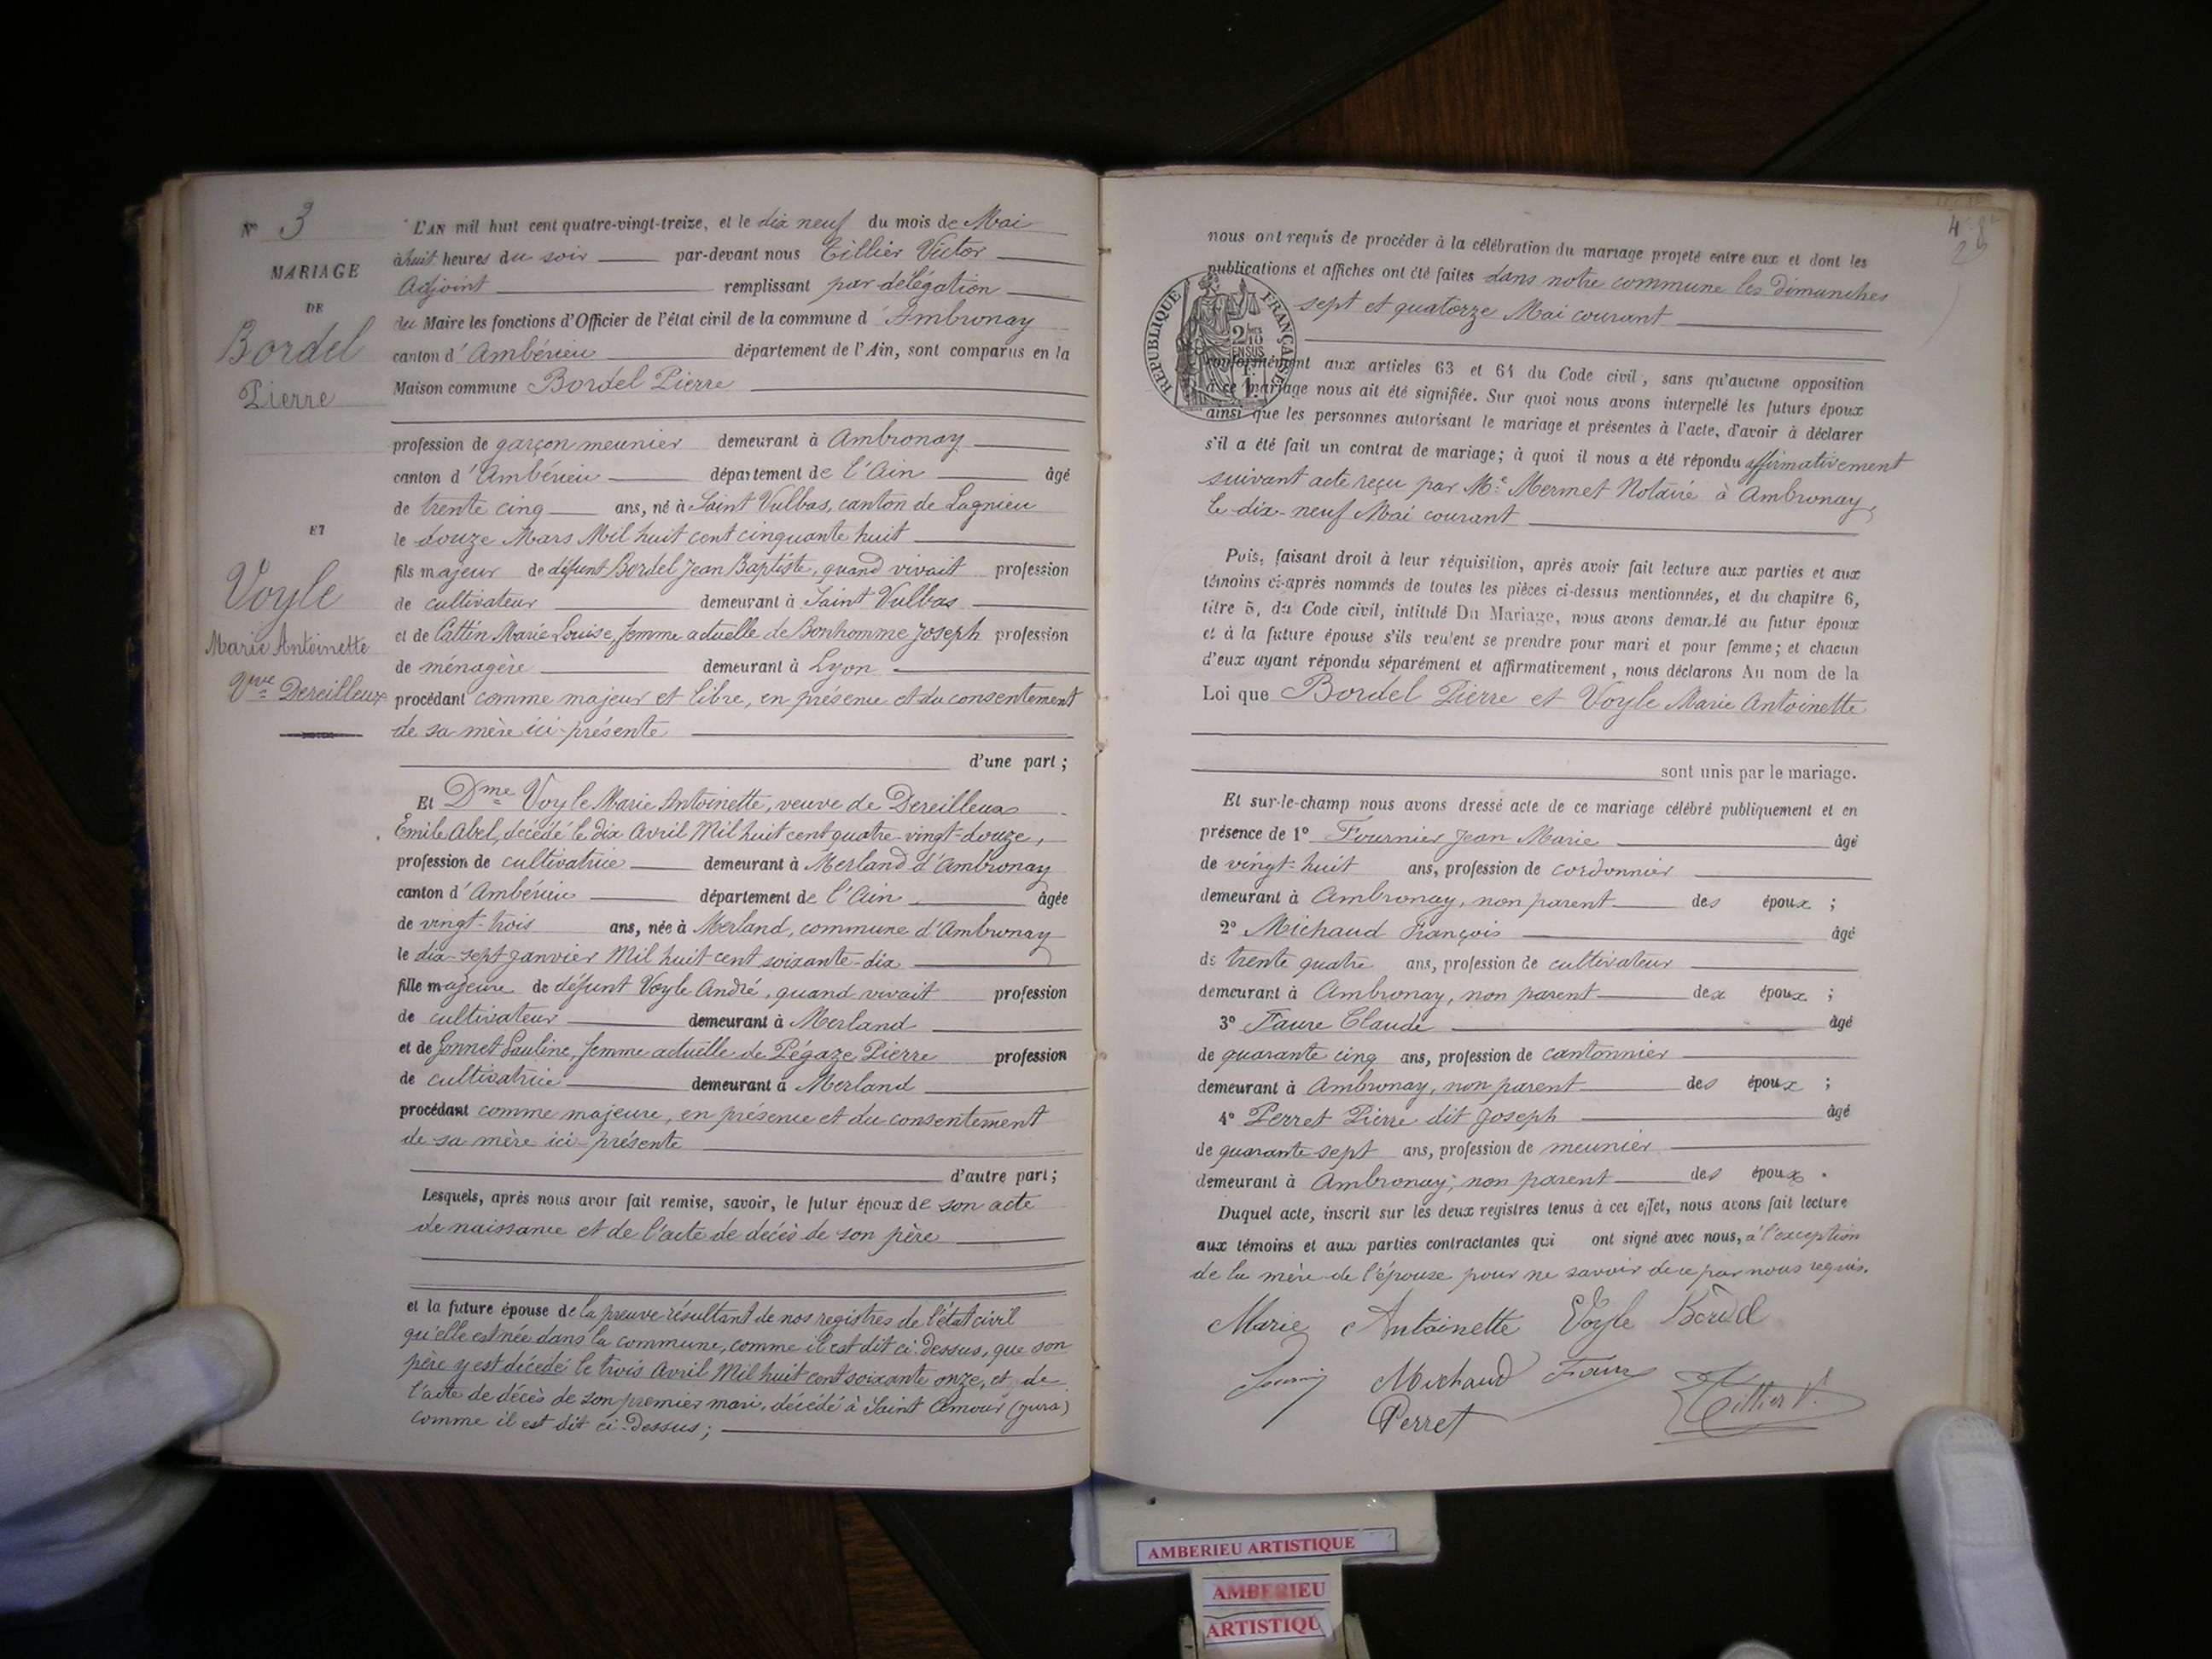 N° 3
MARIAGE
DE
Bordel
Pierre
ET
Voyle
Marie Antoinette
Vve Dereilleux
L'AN mil huit cent quatre-vingt-treize, et le dix neuf du mois de Mai
à huit heures du soir par-devant nous Tillier Victor
Adjoint remplissant par délégation
du Maire les fonctions d'Officier de l'état civil de la commune d'Ambronay
canton d'Ambérieu département de l'Ain, sont comparus en la
Maison commune Bordel Pierre
profession de garçon meunier demeurant à Ambronay
canton d'Ambérieu département de l'Ain âgé
de trente cinq ans, né à Saint Vulbas, canton de Lagnieu
le douze Mars Mil huit cent cinquante huit
fils majeur de défunt Bordel Jean Baptiste, quand vivait profession
de cultivateur demeurant à Saint Vulbas
et de Cattin Marie Louise, femme actuelle de Bonhomme Joseph profession
de ménagère demeurant à Lyon
procédant comme majeur et libre, en présence et du consentement
de sa mère ici présente
d'une part ;
Et Dme Voyle Marie Antoinette, veuve de Dereilleux
Émile Abel, décédé le dix Avril Mil huit cent quatre-vingt-douze,
profession de cultivatrice demeurant à Merland d'Ambronay
canton d'Ambérieu département de l'Ain âgée
de vingt-trois ans, née à Merland, commune d'Ambronay
le dix-sept janvier Mil huit cent soixante-dix
fille majeure de défunt Voyle André, quand vivait profession
de cultivateur demeurant à Merland
et de Jonnet Pauline, femme actuelle de Pégaze Pierre profession
de cultivatrice demeurant à Merland
procédant comme majeure, en présence et du consentement
de sa mère ici présente
d'autre part ;
Lesquels, après nous avoir fait remise, savoir, le futur époux de son acte
de naissance et de l'acte de décès de son père
et la future épouse de la preuve résultant de nos registres de l'état civil
qu'elle est née dans la commune, comme il est dit ci-dessus, que son
père y est décédé le trois Avril Mil huit cent soixante onze, et de
l'acte de décès de son premier mari, décédé à Saint Amour (Jura)
comme il est dit ci-dessus ;
nous ont requis de procéder à la célébration du mariage projeté entre eux et dont les
publications et affiches ont été faites dans notre commune les dimanches
sept et quatorze Mai courant
REPUBLIQUE FRANÇAISE
conformément aux articles 63 et 64 du Code civil, sans qu'aucune opposition
à ce mariage nous ait été signifiée. Sur quoi nous avons interpellé les futurs époux
ainsi que les personnes autorisant le mariage et présentes à l'acte, d'avoir à déclarer
s'il a été fait un contrat de mariage ; à quoi il nous a été répondu affirmativement
suivant acte reçu par Me Mermet Notaire à Ambronay,
le dix-neuf Mai courant
Puis, faisant droit à leur réquisition, après avoir fait lecture aux parties et aux
témoins ci-après nommés de toutes les pièces ci-dessus mentionnées, et du chapitre 6,
titre 5, du Code civil, intitulé Du Mariage, nous avons demandé au futur époux
et à la future épouse s'ils veulent se prendre pour mari et pour femme ; et chacun
d'eux ayant répondu séparément et affirmativement, nous déclarons Au nom de la
Loi que Bordel Pierre et Voyle Marie Antoinette
sont unis par le mariage.
Et sur-le-champ nous avons dressé acte de ce mariage célébré publiquement et en
présence de 1° Fournier Jean Marie âgé
de vingt-huit ans, profession de cordonnier
demeurant à Ambronay, non parent des époux ;
2° Michaud François âgé
de trente quatre ans, profession de cultivateur
demeurant à Ambronay, non parent des époux ;
3° Faure Claude âgé
de quarante cinq ans, profession de cantonnier
demeurant à Ambronay, non parent des époux ;
4° Perret Pierre dit Joseph âgé
de quarante-sept ans, profession de meunier
demeurant à Ambronay, non parent des époux.
Duquel acte, inscrit sur les deux registres tenus à cet effet, nous avons fait lecture
aux témoins et aux parties contractantes qui ont signé avec nous, à l'exception
de la mère de l'épouse pour ne savoir de ce par nous requis.
Marie Antoinette Voyle Bordel
Michaud Faure
Perret Tillier V.
AMBERIEU ARTISTIQUE
AMBERIEU
ARTISTIQU